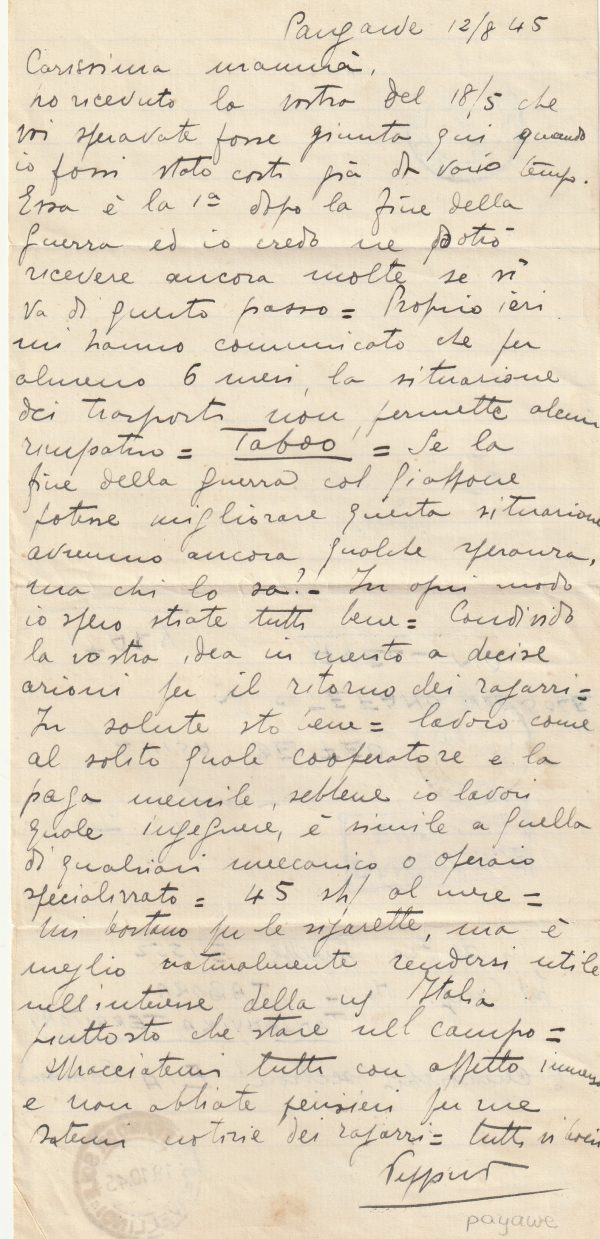 Pangawe 12/8 45
Carissima mamma,
ho ricevuto la vostra del 18/5 che
voi speravate fosse giunta qui quando
io fossi stato costì già da vario tempo.
Essa è la 1ª dopo la fine della
guerra ed io credo ne potrò
ricevere ancora molte se si
va di questo passo = Proprio ieri
mi hanno comunicato che per
almeno 6 mesi, la situazione
dei trasporti non permette alcun
rimpatrio = Taboo! = Se la
fine della guerra col Giappone
potesse migliorare questa situazione
avremmo ancora qualche speranza,
ma chi lo sa? = In ogni modo
io spero stiate tutti bene = Condivido
la vostra idea in merito a decise
azioni per il ritorno dei ragazzi =
In salute sto bene = lavoro come
al solito quale cooperatore e la
paga mensile, sebbene io lavori
quale ingegnere, è simile a quella
di qualsiasi meccanico o operaio
specializzato = 45 sh/ al mese =
Mi bastano per le sigarette, ma è
meglio naturalmente rendersi utile
nell'interesse della Italia
piuttosto che stare nel campo =
Abbracciatemi tutti con affetto immenso
e non abbiate pensieri per me
datemi notizie dei ragazzi = tutti vi
payawe